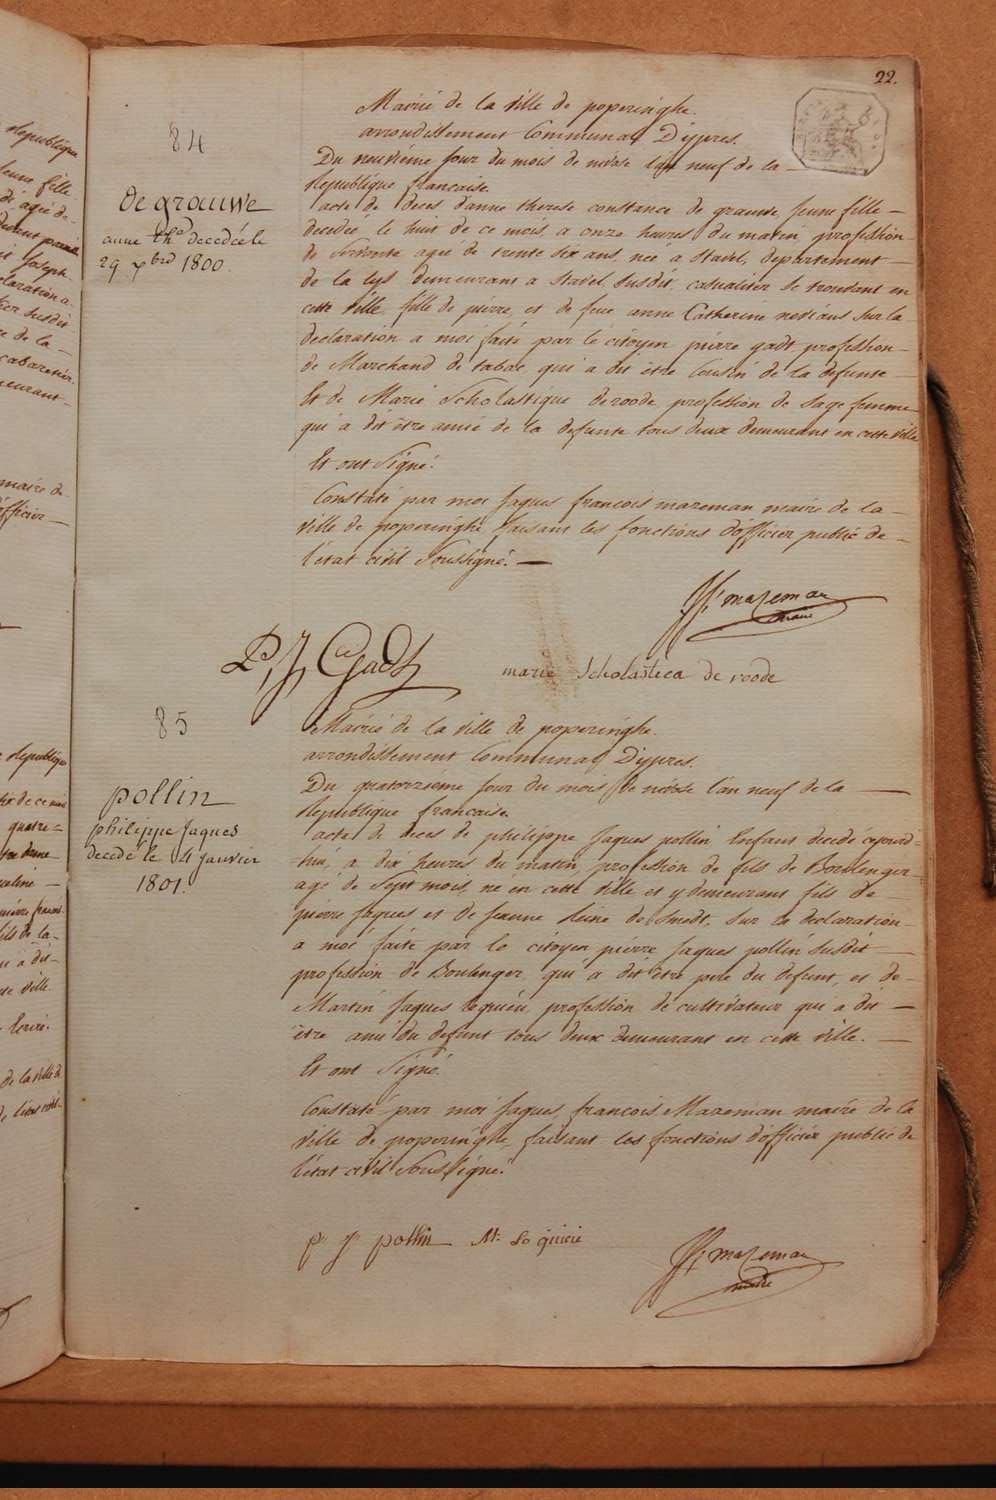 22.
84
de grauwe
anne the decedée le
29 xbre 1800.
Mairie de la ville de poperinghe.
arrondissement Communal D'ypres.
Du neuvième jour du mois de nivose lan neuf de la
Republique francaise.
acte de deces d'anne therese constance de grauwe, jeune fille
decedée le huit de ce mois, a onze heures du matin profession
de Servante agé de trente six ans, née a Stavel, departement
de la lys demeurant a Stavel, Susdit, casualiter se trouvant en
cette ville, fille de pierre, et de feue anne Catherine neviaus sur la
declaration a moi faite par le citoyen pierre gadt profession
de Marchand de tabac qui a dit être Cousin de la defunte
Et de Marie Scholastique de roode profession de Sage femme
qui a dit être amie de la defunte tous deux demeurant en cette ville
Et ont Signé.
Constaté par moi Jaques francois mazeman maire de la
ville de poperinghe faisant les fonctions d'officier public de
l'état civil Soussigné.
JF mazeman
maire
P, J, Gadt
marie Scholastica de roode
85
pollin
philippe Jaques
decedé le 4 janvier
1801.
Mairie de la ville de poperinghe.
arrondissement Communal D'ypres.
Du quatorzieme jour du mois de nivose l'an neuf de la
Republique francaise.
acte de deces de philippe Jaques pollin Enfant decedé aejourd-
hui, a dix heures du matin, profession de fils de Boulenger
agé de Sept mois, né en cette ville et y demeurant fils de
pierre Jaques et de Jeanne Reine de Smedt, Sur la declaration
a moi faite par le citoyen pierre Jaques pollin susdit
profession de Boulenger, qui a dit être pere du defunt, et de
Martin Jaques lequieu, profession de cultivateur qui a dit
être ami du defunt tous deux demeurant en cette ville.
Et ont Signé.
Constaté par moi Jaques francois Mazeman maire de la
ville de poperinghe, faisant les fonctions d'officier public de
l'état civil Soussigné.
p J pollin
M: Le quieu
JF mazeman
maire